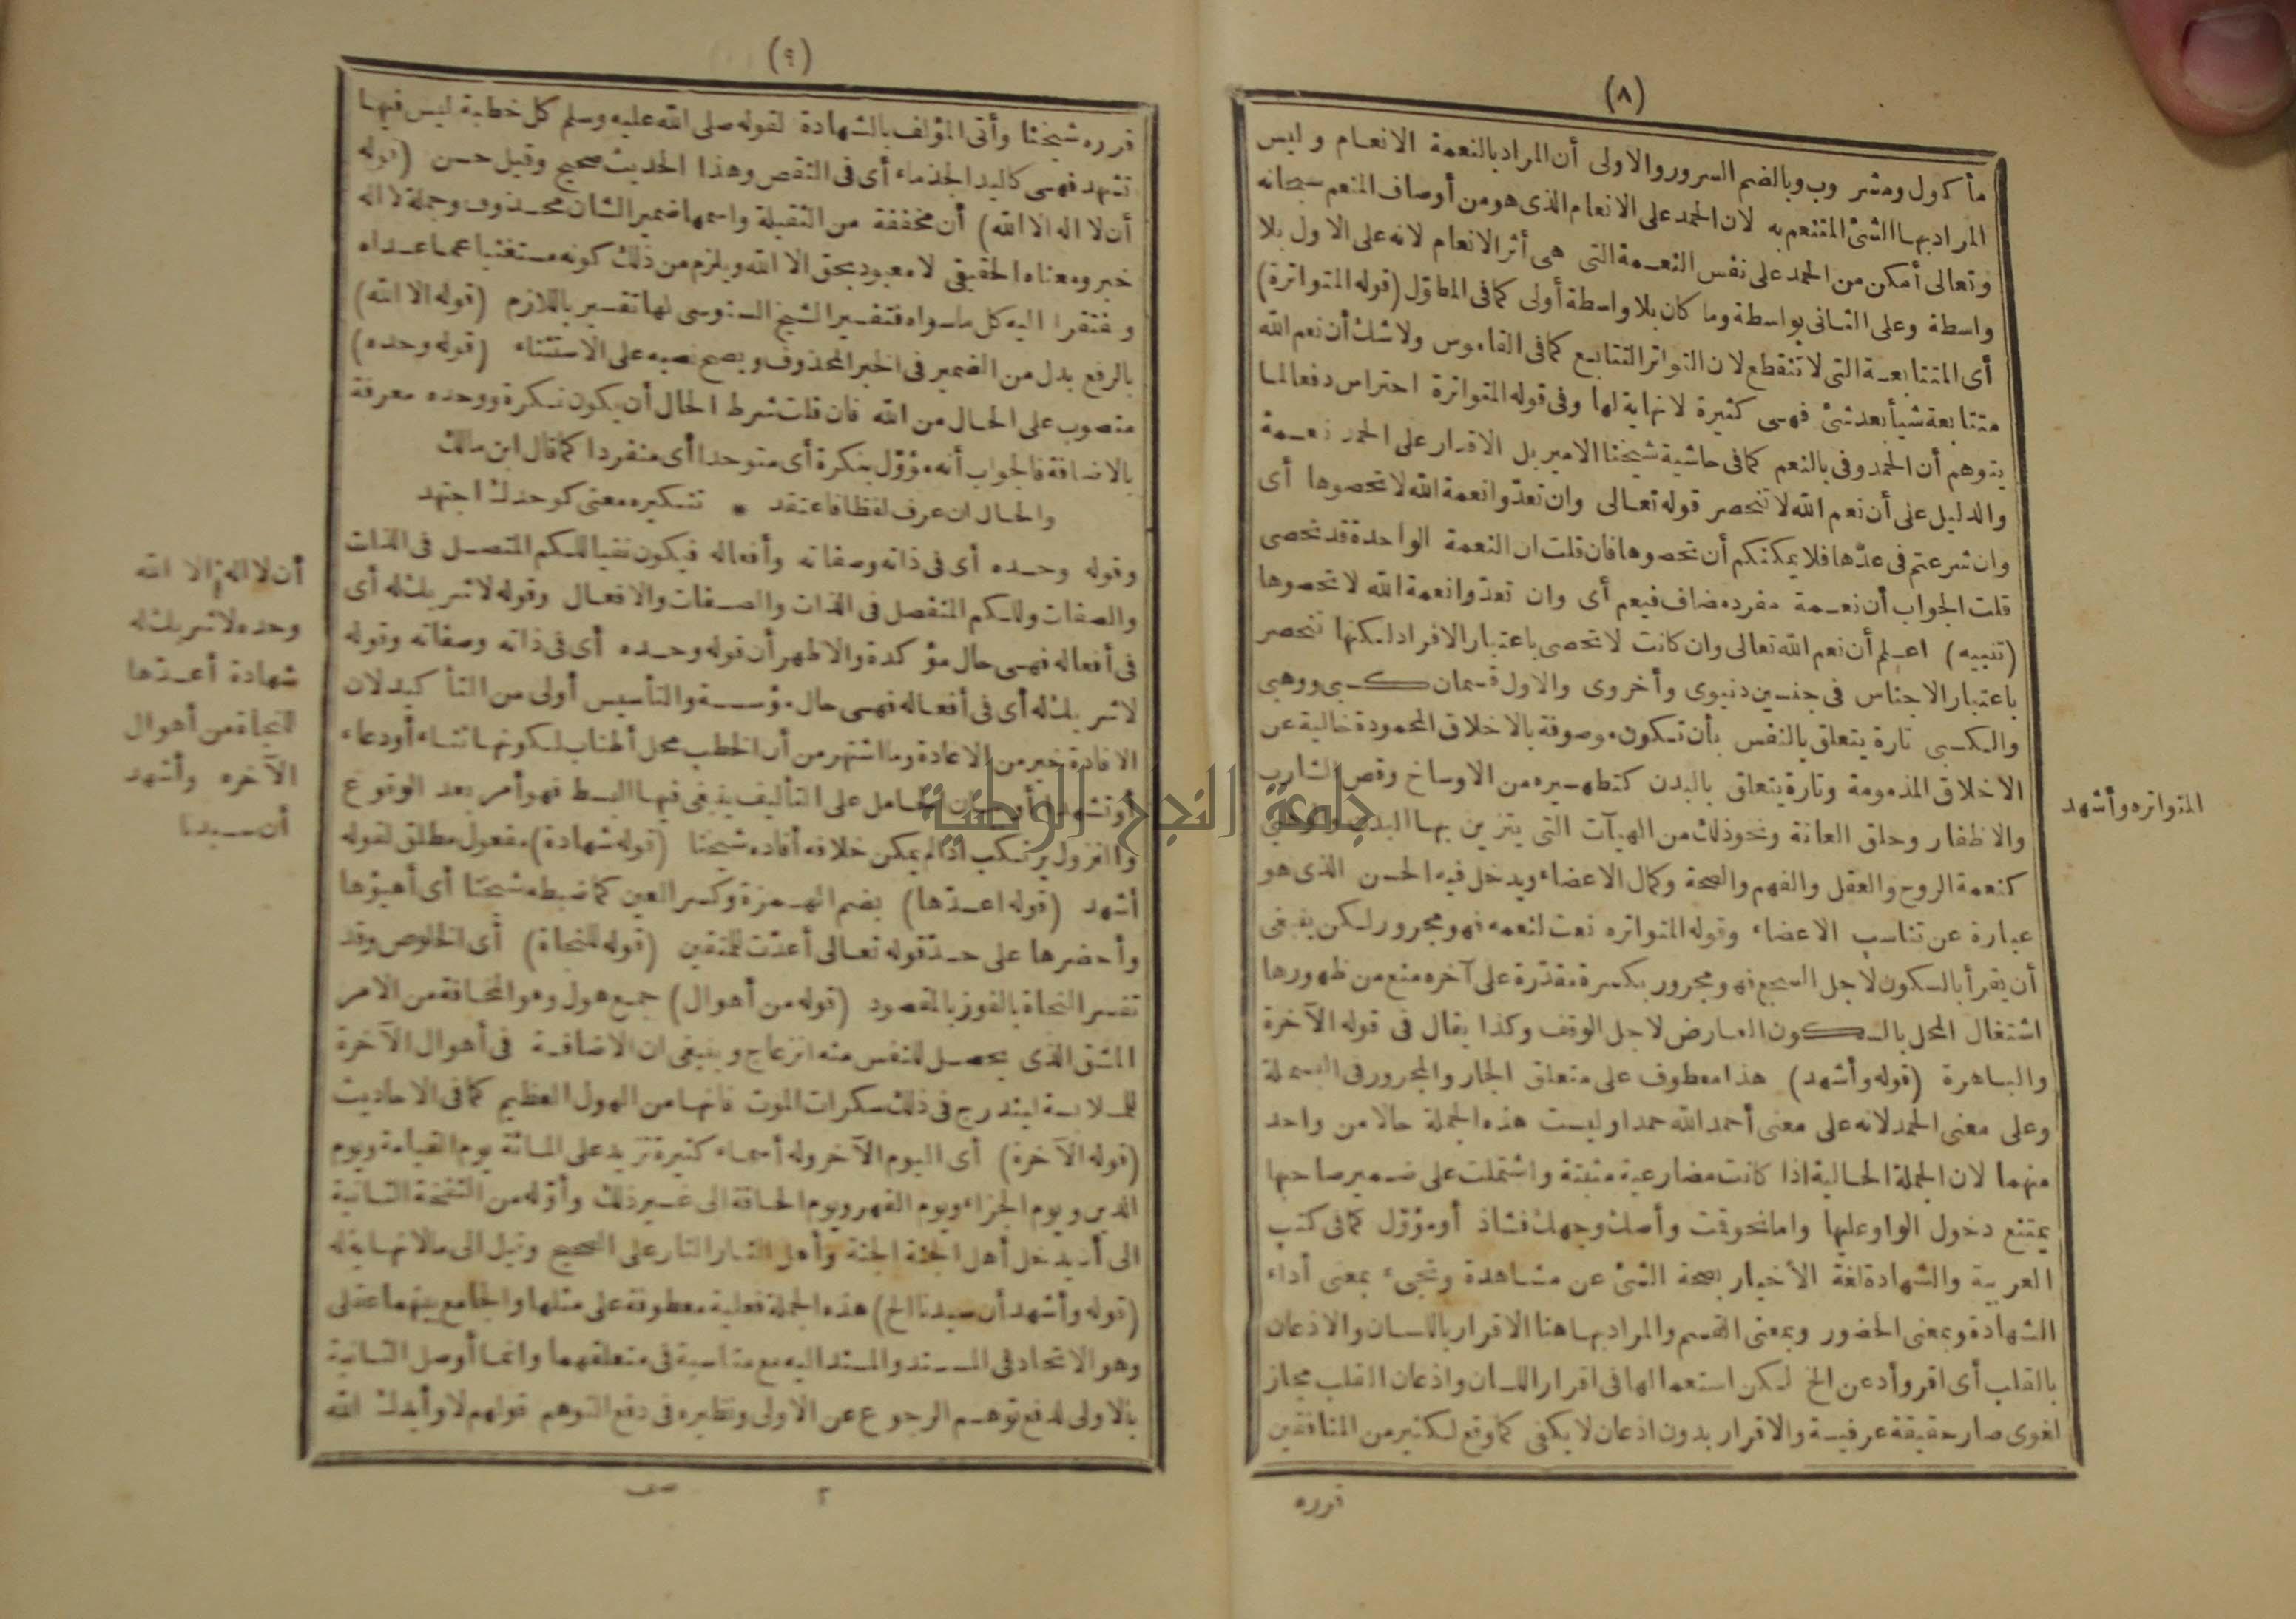 (٨)
مأكول ومشروب وبالضم السرور والاولى أن المراد بالنعمة الانعام وليس
المراد بها الشئ المتنعم به لان الحمد على الانعام الذى هو من أوصاف المنعم سبحانه
وتعالى أمكن من الحمد على نفس النعمة التى هى أثر الانعام لانه على الاول بلا
واسطة وعلى الثانى بواسطة وما كان بلا واسطة أولى كما فى المطوّل (قوله المتواترة)
أى المتتابعة التى لا تنقطع لان التواتر التتابع كما فى القاموس ولا شك أن نعم الله
متتابعة شيأ بعد شئ فهى كثيرة لا نهاية لها وفى قوله المتواترة احتراس دفعا لما
يتوهم أن الحمد وفى بالنعم كما فى حاشية شيخنا الامير بل الاقدار على الحمد نعمة
والدليل على أن نعم الله لا تنحصر قوله تعالى وان تعدّوا نعمة الله لا تحصوها أى
وان شرعتم فى عدّها فلا يمكنكم أن تحصوها فان قلت ان النعمة الواحدة قد تحصى
قلت الجواب أن نعمة مفرد مضاف فيعم أى وان تعدّوا نعمة الله لا تحصوها
(تنبيه) اعلم أن نعم الله تعالى وان كانت لا تحصى باعتبار الافراد لكنها تنحصر
باعتبار الاجناس فى جنسين دنيوى وأخروى والاول قسمان كسبى ووهبى
والكسبى تارة يتعلق بالنفس بأن تكون موصوفة بالاخلاق المحمودة خالية عن
الاخلاق المذمومة وتارة يتعلق بالبدن كتطهيره من الاوساخ وقص الشارب
والاظفار وحلق العانة ونحو ذلك من الهيآت التى يتزين بها البدن ووهبى
كنعمة الروح والعقل والفهم والصحة وكمال الاعضاء ويدخل فيه الحسن الذى هو
عبارة عن تناسب الاعضاء وقوله المتواتره نعت لنعمه فهو مجرور لكن ينبغى
أن يقرأ بالسكون لاجل السجع فهو مجرور بكسرة مقدّرة على آخره منع من ظهورها
اشتغال المحل بالسكون العارض لاجل الوقف وكذا يقال فى قوله الآخرة
والباهرة (قوله وأشهد) هذا معطوف على متعلق الجار والمجرور فى البسملة
وعلى معنى الحمد لانه على معنى أحمد الله حمدا وليست هذه الجملة حالا من واحد
منهما لان الجملة الحالية اذا كانت مضارعية مثبتة واشتملت على ضمير صاحبها
يمتنع دخول الواو عليها واما نحو قمت وأصك وجهك فشاذ أو مؤوّل كما فى كتب
العربية والشهادة لغة الأخبار بصحة الشئ عن مشاهدة وتجىء بمعنى أداء
الشهادة وبمعنى الحضور وبمعنى القسم والمراد بها هنا الاقرار باللسان والاذعان
بالقلب أى اقر وأذعن الخ لكن استعمالها فى اقرار اللسان واذعان القلب مجاز
لغوى صار حقيقة عرفية والاقرار بدون اذعان لا يكفى كما وقع لكثير من المنافقين
قرره
المتواتره وأشهد
جامعة النجاح الوطنية
(٩)
قرره شيخنا وأتى المؤلف بالشهادة لقوله صلى الله عليه وسلم كل خطبة ليس فيها
تشهد فهى كاليد الجذماء أى فى النقص وهذا الحديث صحيح وقيل حسن (قوله
أن لا اله الا الله) أن مخففة من الثقيلة واسمها ضمير الشان محذوف وجملة لا اله
خبر ومعناه الحقيقى لا معبود بحق الا الله ويلزم من ذلك كونه مستغنيا عما عداه
ومفتقرا اليه كل ما سواه فتفسير الشيخ السنوسى لها تفسير باللازم (قوله الا الله)
بالرفع بدل من الضمير فى الخبر المحذوف ويصح نصبه على الاستثناء (قوله وحده)
منصوب على الحال من الله فان قلت شرط الحال أن يكون نكرة ووحده معرفة
بالاضافة فالجواب أنه مؤوّل بنكرة أى متوحدا أى منفردا كما قال ابن مالك
والحال ان عرف لفظا فاعتقد * تنكيره معنى كوحدك اجتهد
وقوله وحده أى فى ذاته وصفاته وأفعاله فيكون نفيا للكم المتصل فى الذات
والصفات وللكم المنفصل فى الذات والصفات والافعال وقوله لا شريك له أى
فى أفعاله فهى حال مؤكدة والاظهر أن قوله وحده أى فى ذاته وصفاته وقوله
لا شريك له أى فى أفعاله فهى حال مؤسسة والتأسيس أولى من التأكيد لان
الافادة خير من الاعادة وما اشتهر من أن الخطب محل أطناب لكونها ثناء أو دعاء
أو تشهدا أو الحامل على التأليف ينبغى فيها البسط فهو أمر بعد الوقوع
والنزول يرتكب اذا لم يمكن خلافه أفاده شيخنا (قوله شهادة) مفعول مطلق لقوله
أشهد (قوله اعدّها) بضم الهمزة وكسر العين كما ضبطه شيخنا أى أهيؤها
وأحضرها على حدّ قوله تعالى أعدّت للمتقين (قوله للنجاة) أى الخلوص وقد
تفسر النجاة بالفوز بالمقصود (قوله من أهوال) جمع هول وهو المخافة من الامر
المشق الذى يحصل للنفس منه انزعاج وينبغى ان الاضافة فى أهوال الآخرة
للملابسة ليندرج فى ذلك سكرات الموت فانها من الهول العظيم كما فى الاحاديث
(قوله الآخرة) أى اليوم الآخر وله أسماء كثيرة تزيد على المائة يوم القيامة ويوم
الدين ويوم الجزاء ويوم القهر ويوم الحاقة الى غير ذلك وأوّله من النفخة الثانية
الى أن يدخل أهل الجنة الجنة وأهل النار النار على الصحيح وقيل الى مالا نهاية له
(قوله وأشهد أن سيدنا الخ) هذه الجملة فعلية معطوفة على مثلها والجامع بينهما عقلى
وهو الاتحاد فى المسند والمسند اليه مع مناسبة فى متعلقهما وانما أوصل الثانية
بالاولى لدفع توهم الرجوع عن الاولى ونظيره فى دفع التوهم قولهم لا وأيدك الله
٢
أن لا اله الا الله
وحده لا شريك له
شهادة أعدّها
للنجاة من أهوال
الآخره وأشهد
أن سيدنا